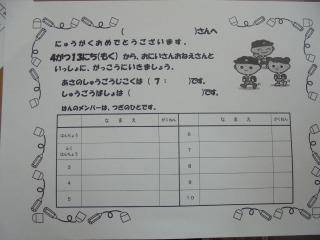 (　　　　　　　　　　)さんへ
にゅうがくおめでとうございます。
4がつ13にち(もく)から、おにいさんおねえさんと
いっしょに、がっこうにいきましょう。
あさのしゅうごうじこくは(7：　　)です。
しゅうごうばしょは(　　　　　　　　　　)です。
はんのメンバーは、つぎのひとです。
なまえ　がくねん　なまえ　がくねん
はんちょう　6
ふく
はんちょう　7
3　8
4　9
5　10